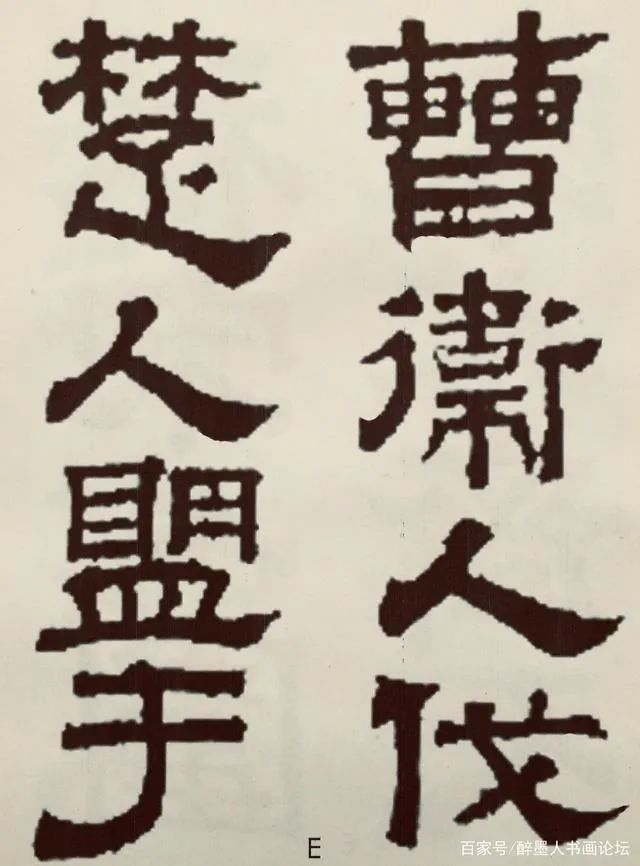 曹衛人伐
楚人盟于
E
百家号/醉墨人书画论坛